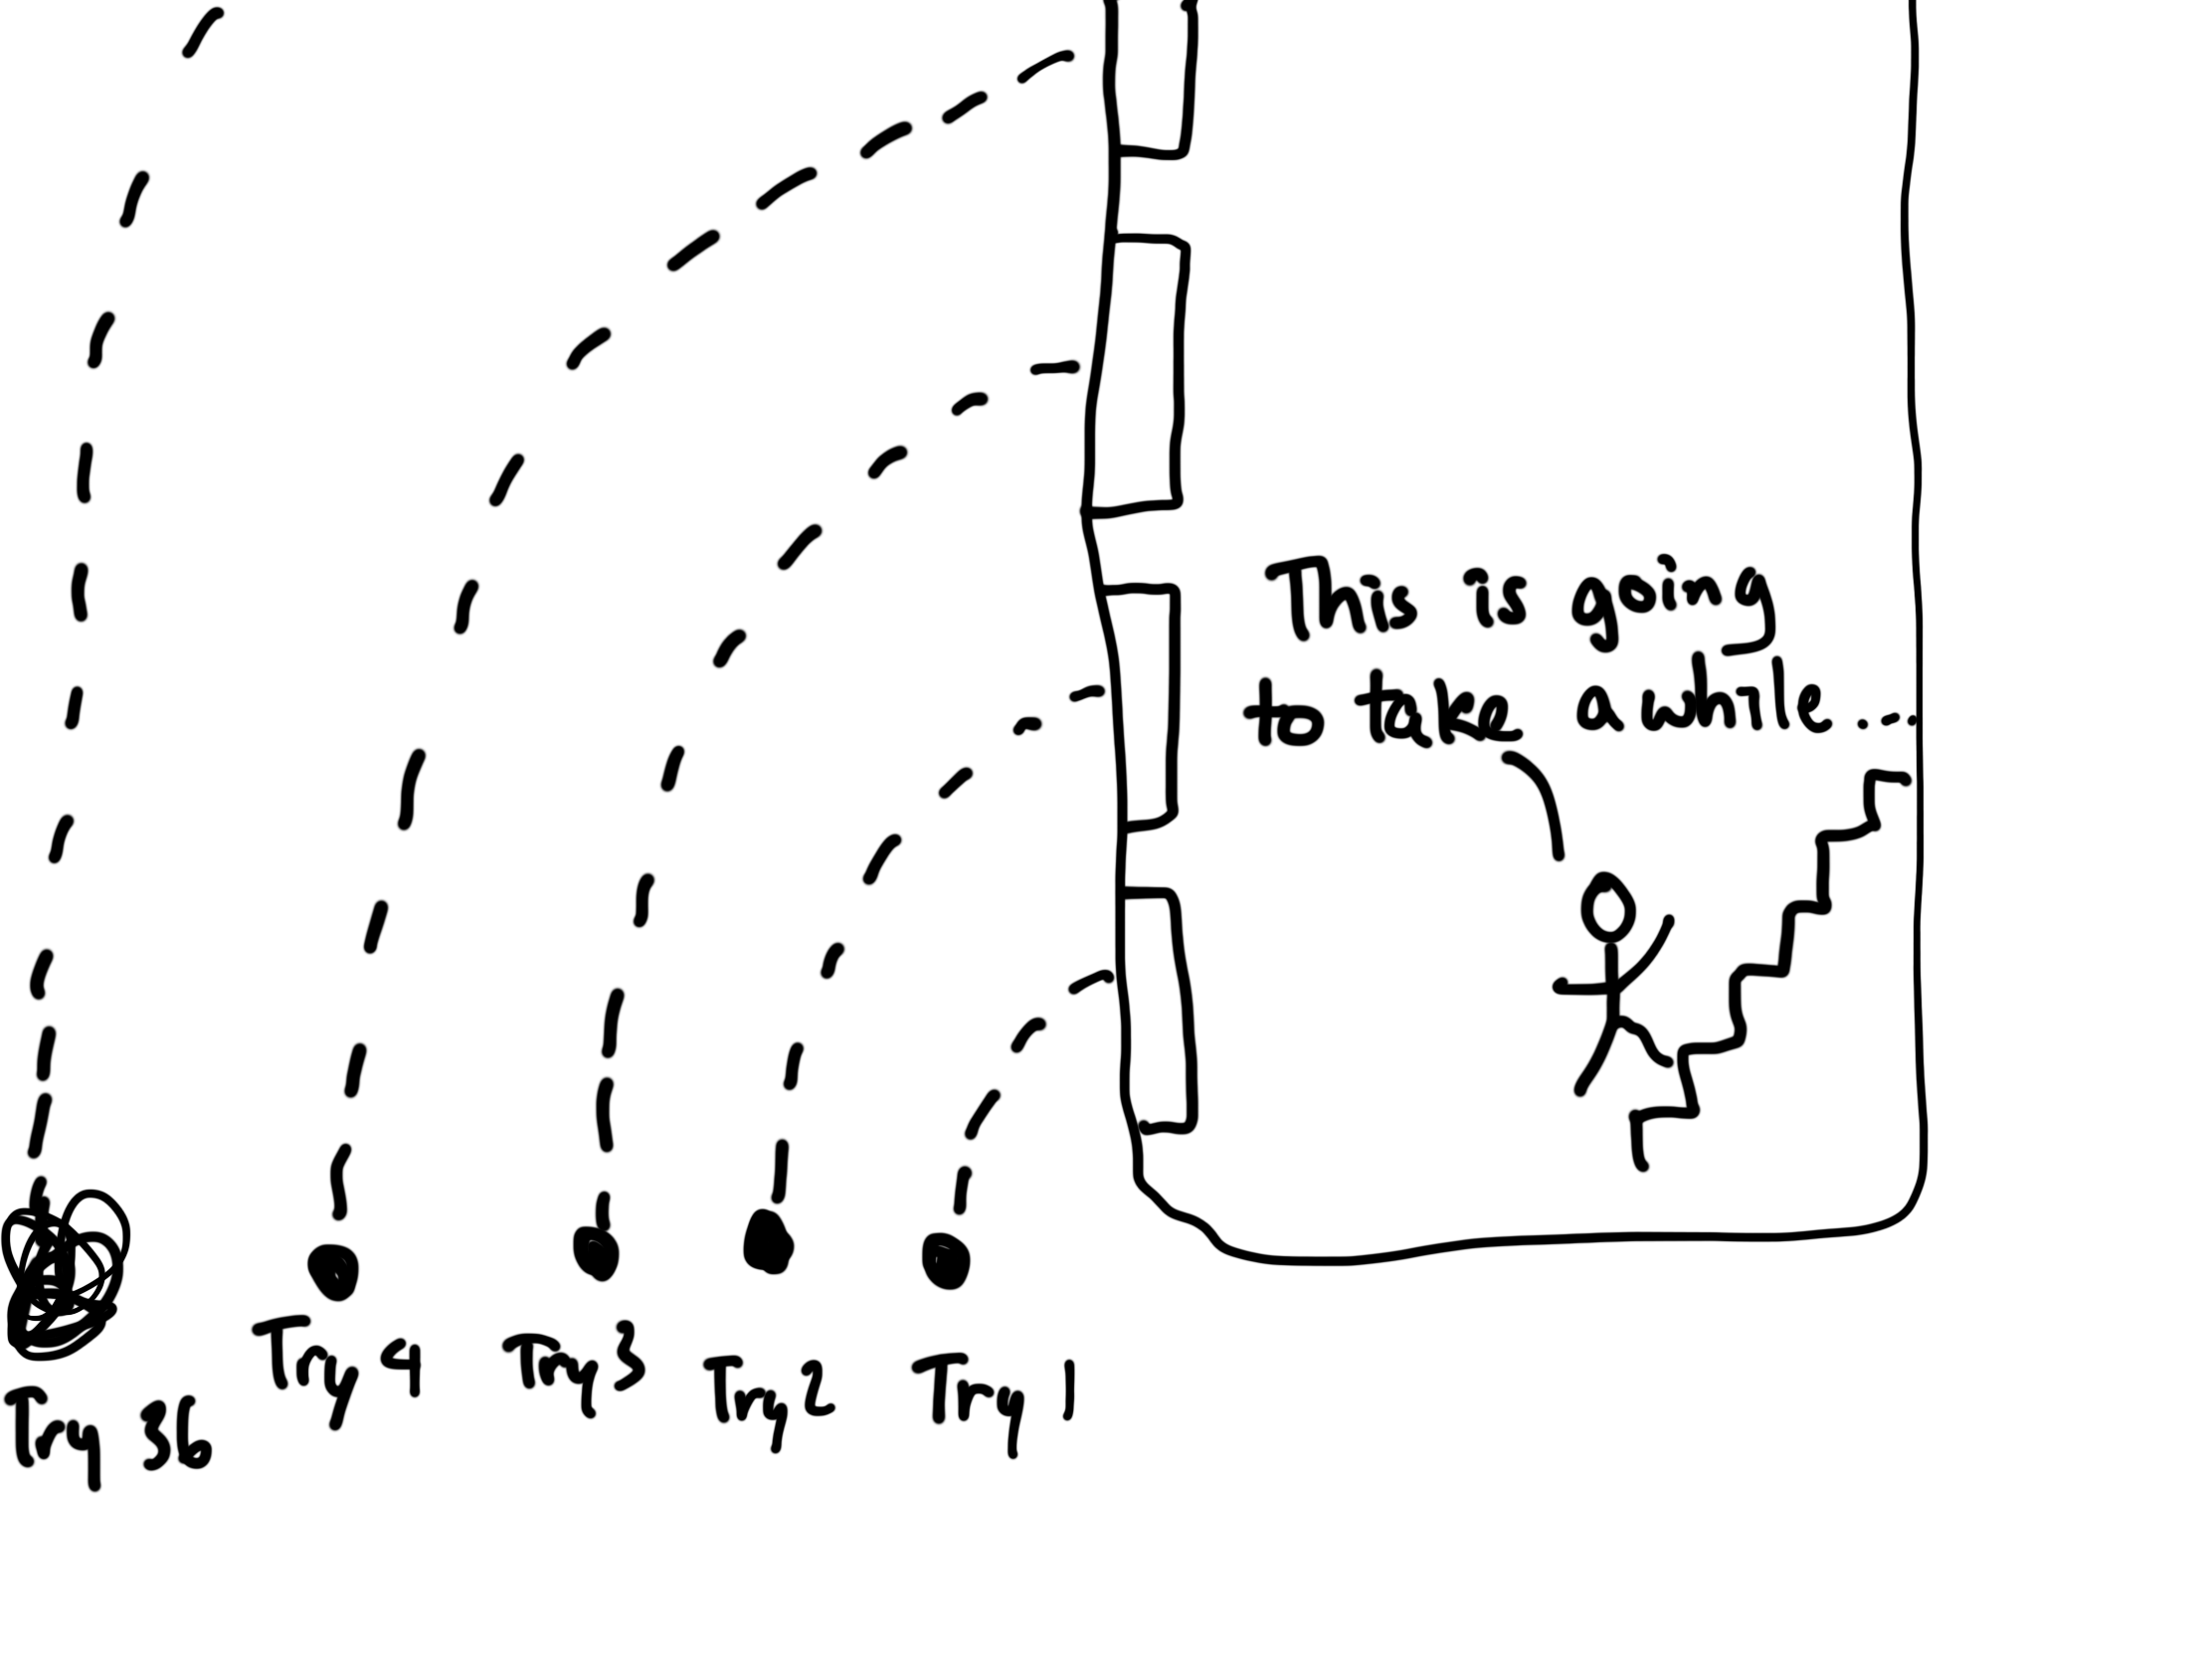 This is going
to take a while...
Try 4
Try 3
Try 2
Try 1
Try 36